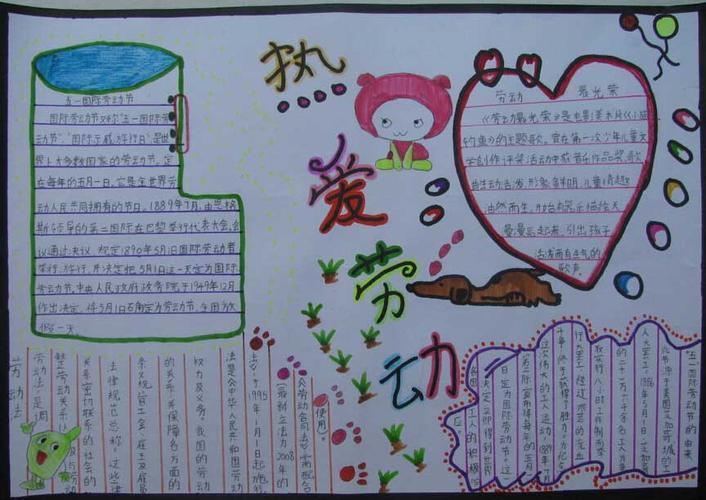 热爱劳动
五一国际劳动节
国际劳动节又称"五一国际劳
动节"、"国际示威游行日"是世
界上大多数国家的劳动节。定
在每年的五月一日。它是全世界劳
动人民共同拥有的节日。1889年7月,由恩格
斯领导的第二国际在巴黎举行代表大会,会
议通过决议,规定1890年5月1日国际劳动者
举行游行,并决定把5月1日这一天定为国际
劳动节。中央人民政府政务院于1949年12月
作出决定,将5月1日确定为劳动节。全国放
假一天
劳动 最光荣
《劳动最光荣》是电影美术片《小猫
钓鱼》的主题歌,曾在第一次少年儿童文
学创作评奖活动中荣获音乐作品奖,歌
曲生动活泼,形象鲜明,儿童情趣
油然而生,
引出孩子
活泼而有生气的
歌声。
劳动法
劳动法是调
整劳动关系以及与劳动
关系密切联系的社会的
法律规范总称。这些律
条文规管工会、雇主及雇员
的关系,并保障各方面的
权力及义务。我国的劳动
法是《中华人民共和国劳动
法》,于1995年1月1日起施行
(最新立法为2008年的
《劳动合同法》,需配合
使用。
"五一"国际劳动节的由来
此节源于美国芝加哥城的工
人大罢工。1886年5月1日,芝加哥
的二十一万六千余名工人为争
取实行八小时工作制而举
行大罢工,经过艰苦的流血
斗争,终于获得了胜利。为纪念
这次伟大的工人运动,1889年7月
第二际宣布将每年的五月
一日定为国际劳动节。这
一决定立即得到世界
各国工人的积极响应